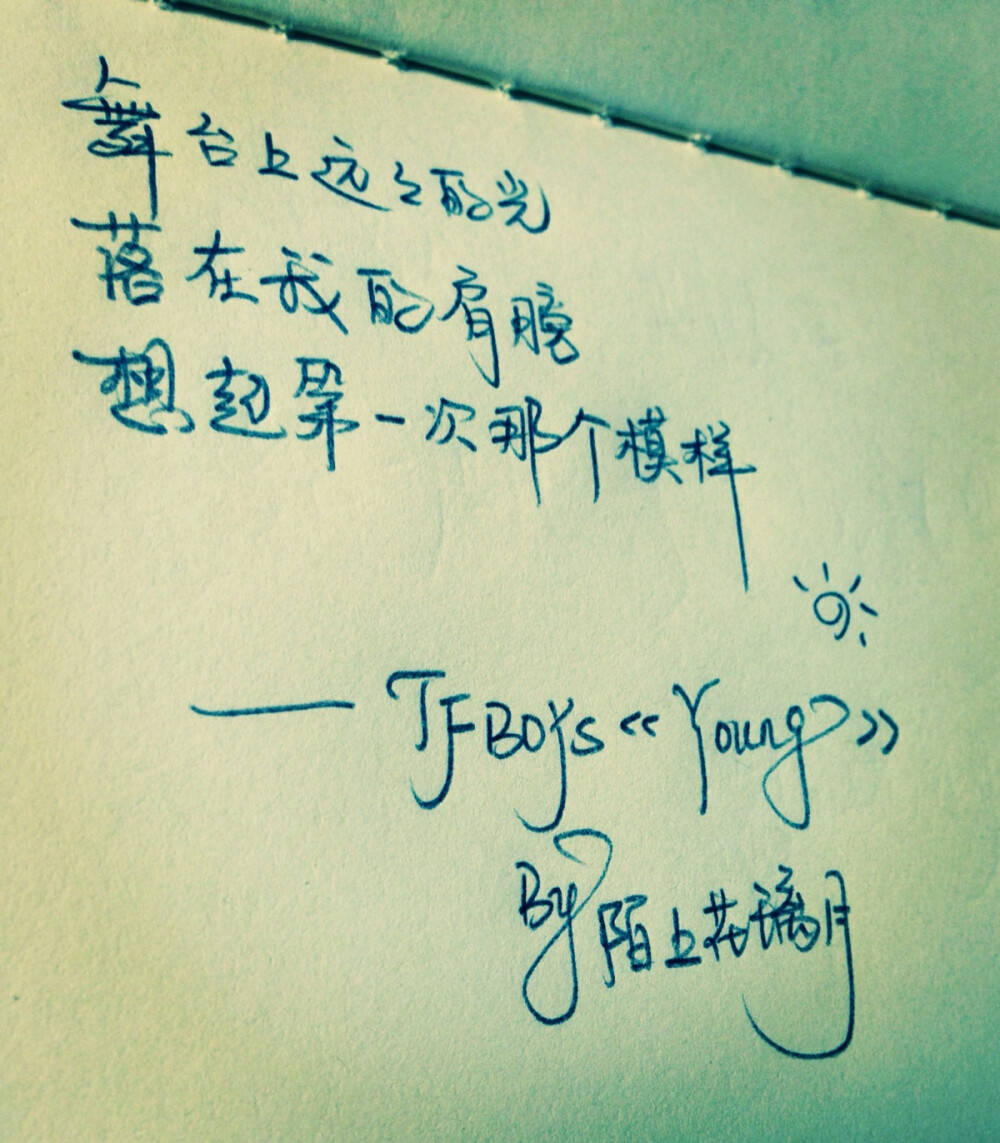 舞台上远远的光
落在我的肩膀
想起第一次那个模样
——TFBOYs《Young》
By陌上花璃月